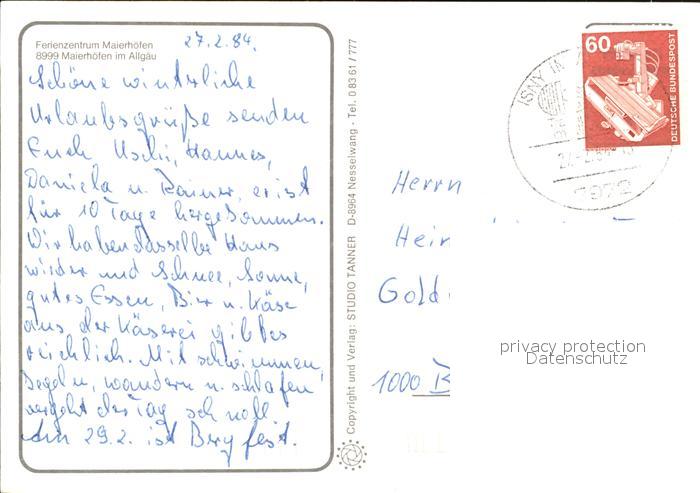 Ferienzentrum Maierhöfen
8999 Maierhöfen im Allgäu
27.2.84.
Schöne winterliche
Urlaubsgrüße senden
Euch Uschi, Hannes,
Daniela u. Rainer, er ist
für 10 Tage hergekommen.
Wir haben dasselbe Haus
wieder und Schnee, Sonne,
gutes Essen, Bier u. Käse
aus der Käserei gibt es
reichlich. Mit schwimmen,
segeln, wandern u. schlafen
vergeht der Tag schnell
Am 29.2. ist Bergfest.
Copyright und Verlag: STUDIO TANNER D-8964 Nesselwang - Tel. 0 83 61 / 777
60
DEUTSCHE BUNDESPOST
ISNY IM
7972
Herrn
Hein
Gold
1000 B
privacy protection
Datenschutz